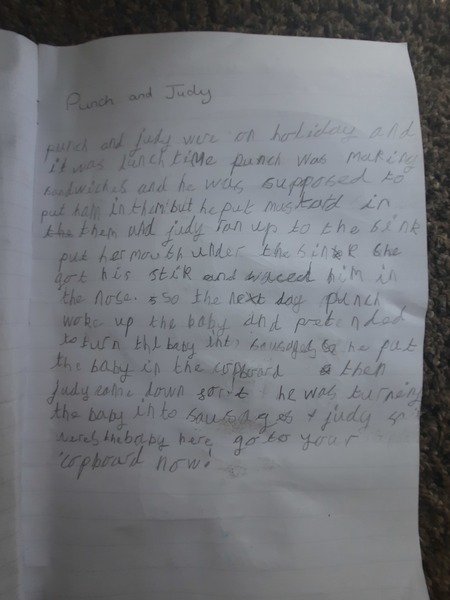 Punch and Judy
punch and judy were on holiday and
it was lunch time punch was making
sandwiches and he was supposed to
put ham in them but he put mustatd in
the them and judy ran up to the sink
put her mouth under the sink she
got his stik and waced him in
the nose. so the next day punch
woke up the baby and pretended
to turn the baby into sausages he put
the baby in the copboard then
Judy came down he was turning
the baby into sausages + judy
weres the baby here go to your
copboard now!